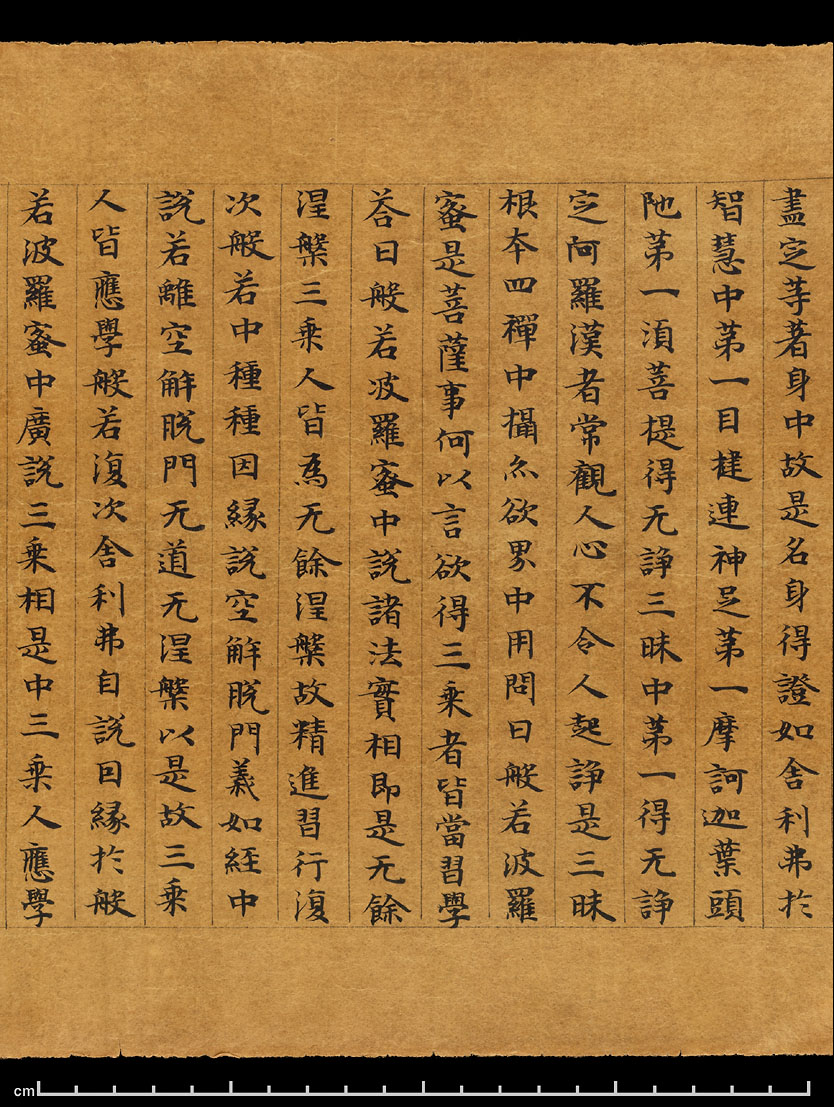 盡定等著身中故是名身得證如舍利弗於
智慧中第一目揵連神足第一摩訶迦葉頭
陁第一須菩提得无諍三昧中第一得无諍
定阿羅漢者常觀人心不令人起諍是三昧
根本四禪中攝亦欲界中用問曰般若波羅
蜜是菩薩事何以言欲得三乘者皆當習學
荅曰般若波羅蜜中說諸法實相即是无餘
涅槃三乘人皆為无餘涅槃故精進習行復
次般若中種種因緣說空解脫門義如經中
說若離空解脫門无道无涅槃以是故三乘
人皆應學般若復次舍利弗自說因緣於般
若波羅蜜中廣說三乘相是中三乘人應學
cm